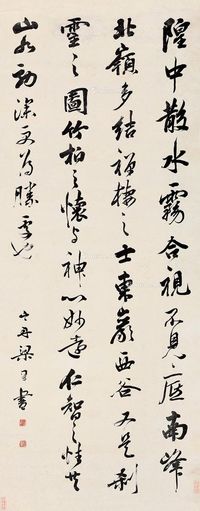 隍中散水霧合視不見底南峰
北嶺多結禪棲之士東巖西谷又是刹
靈之圖竹柏之懷與神心妙遠仁智之性共
山水効深更為勝處也
山舟梁同書